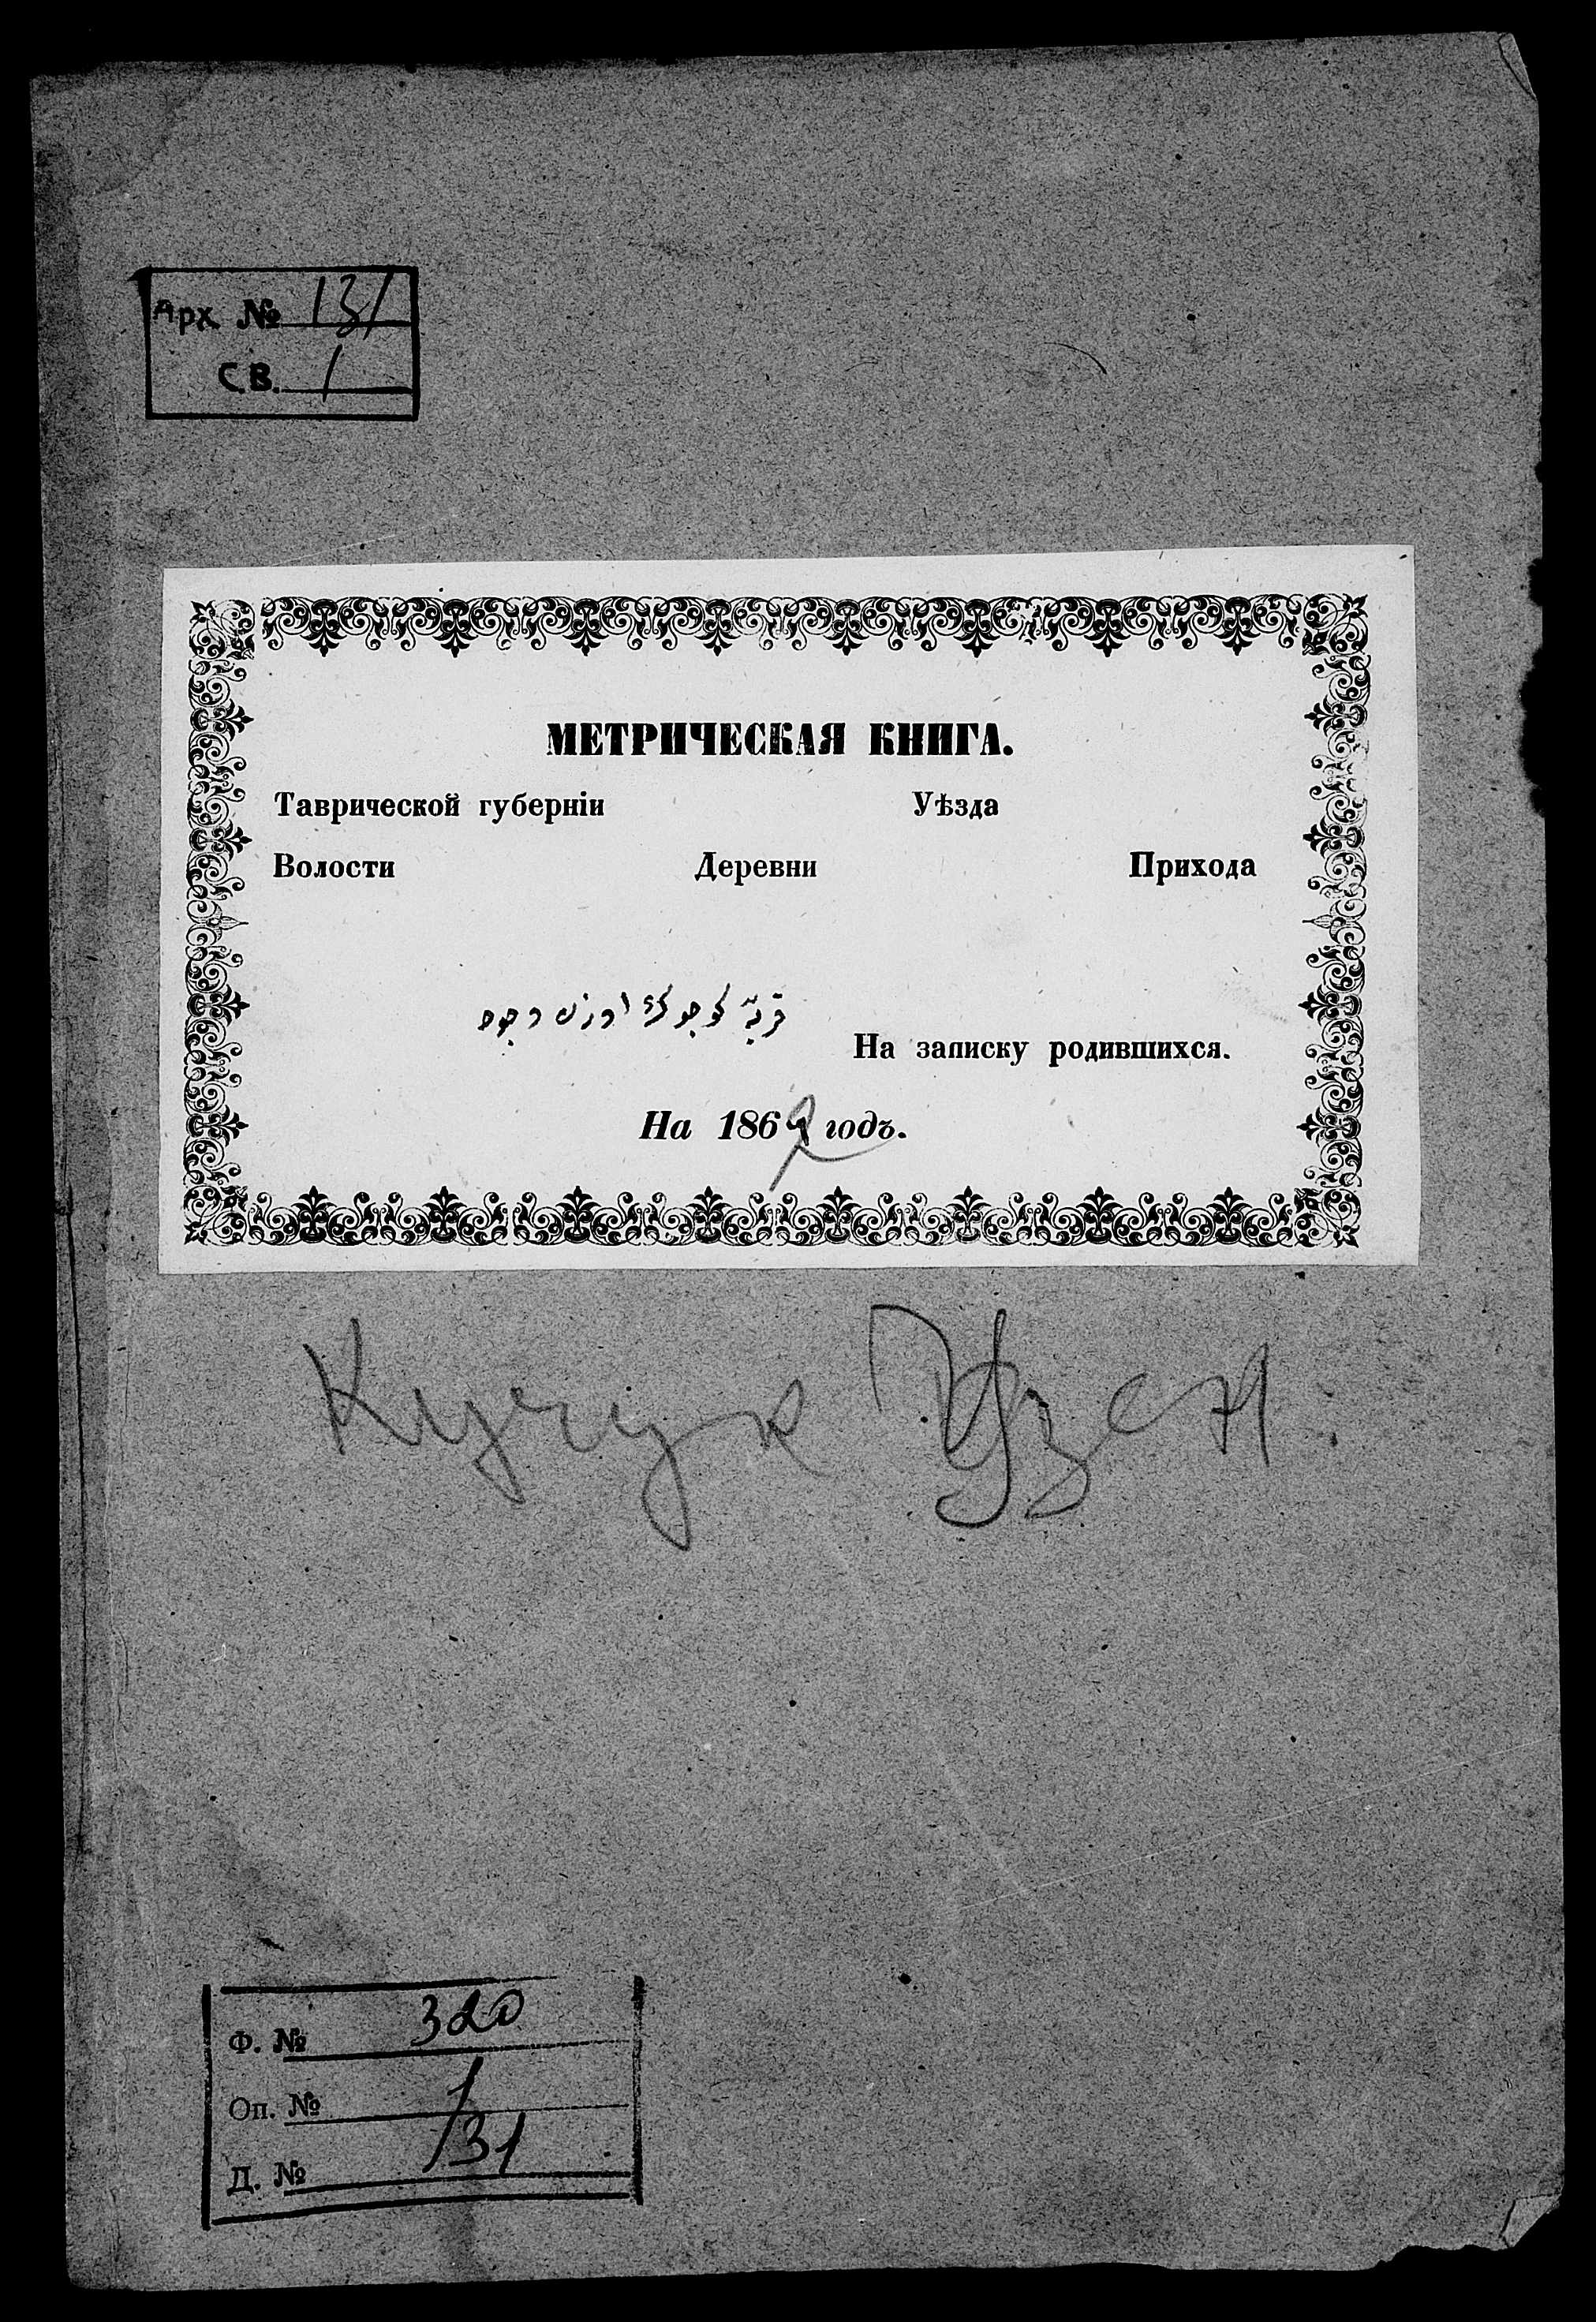 Арх. № 131
С.В. 1
МЕТРИЧЕСКАЯ КНИГА.
Таврической губерніи Уѣзда
Волости Деревни Прихода
قریهٔ
На записку родившихся.
На 1869 годъ.
Кучук Узен
Ф. № 320
Оп. № 1
Д. № 131